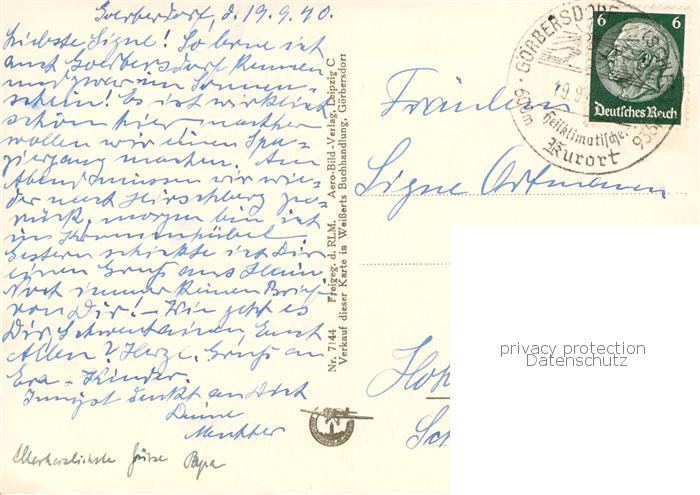 Goerbersdorf, d. 19.9.40.
Liebste Signe! So lerne ich
auch Goerbersdorf kennen
und zwar im Sonnen-
schein! Es ist wirklich
schön hier, nachher
wollen wir einen Spa-
ziergang machen. Am
Abend müssen wir wie-
der nach Hirschberg zu-
rück, morgen bin ich
in Krummhübel.
Gestern schickte ich Dir
einen Gruss aus Hain.
Noch immer keinen Brief
von Dir! - Wie geht es
Dir, Euch
Allen? Herzl. Gruss an
Eva - Kinder.
Innigst denkt an Dich
Deine
Allerherzlichste Grüsse Papa
Nr. 7144 Freigeg. d. RLM. Aero-Bild-Verlag, Leipzig C
Verkauf dieser Karte in Weißerts Buchhandlung, Görbersdorf
GÖRBERSDORF
19.9.
Heilklimatischer
Kurort
6 6
Deutsches Reich
Fräulein
Signe Ortmann
privacy protection
Datenschutz